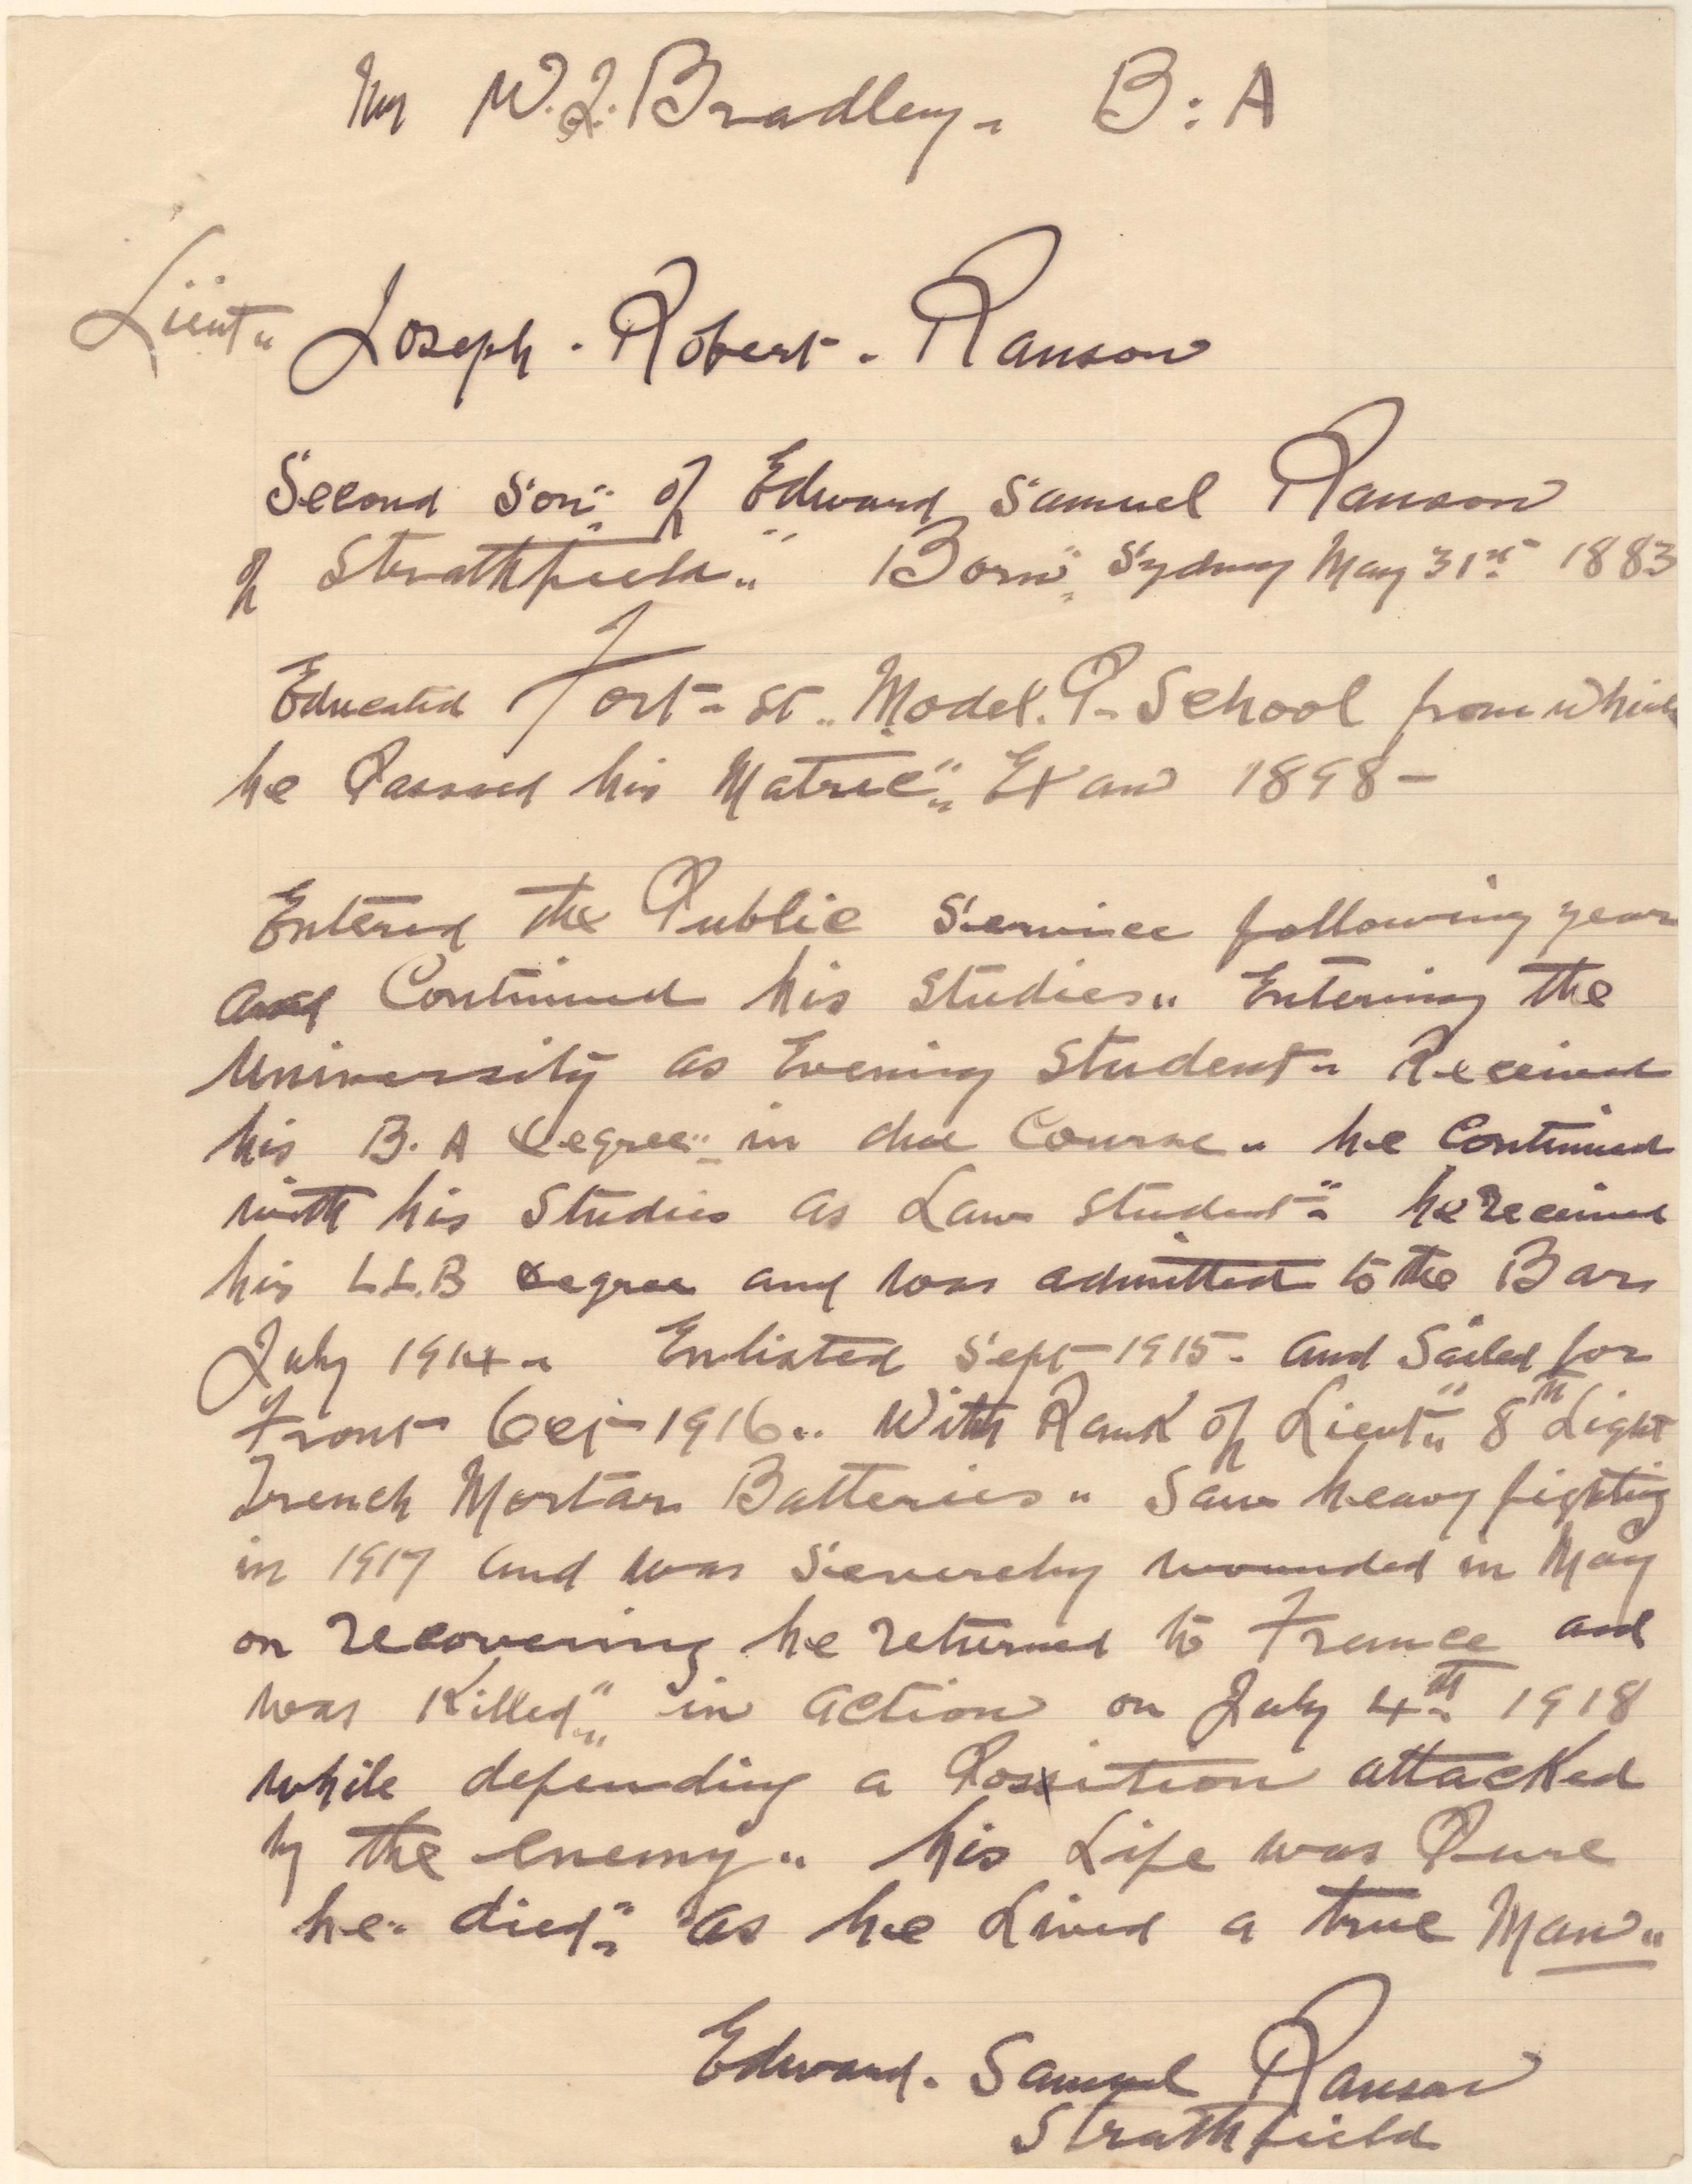 Mr W. J. Bradley - B: A
Lieut" Joseph . Robert . Ranson
Second Son" of Edward Samuel Ranson
of Strathfield" Born" Sydney May 31st 1883
Educated Fort - St " Model . P - School from which
he Passed his Matric" Exam 1898 -
Entered the Public Service following year
and Continued his Studies " Entering the
University as Evening Student - Received
his B. A Degree" in due Course " he Continued
with his Studies as Law Student" he received
his L.L.B Degree and was admitted to the Bar
July 1914 - Enlisted Sept - 1915 - and Sailed for
Front Oct - 1916 " With Rank of Lieut" 8th Light
Trench Mortar Batteries " Saw heavy fighting
in 1917 and was Severely wounded in May
on recovering he returned to France and
was Killed" in action on July 4th 1918
while defending a Position attacked
by the enemy " his Life was Pure
he" died" as he Lived a true Man "
Edward . Samuel Ranson
Strathfield